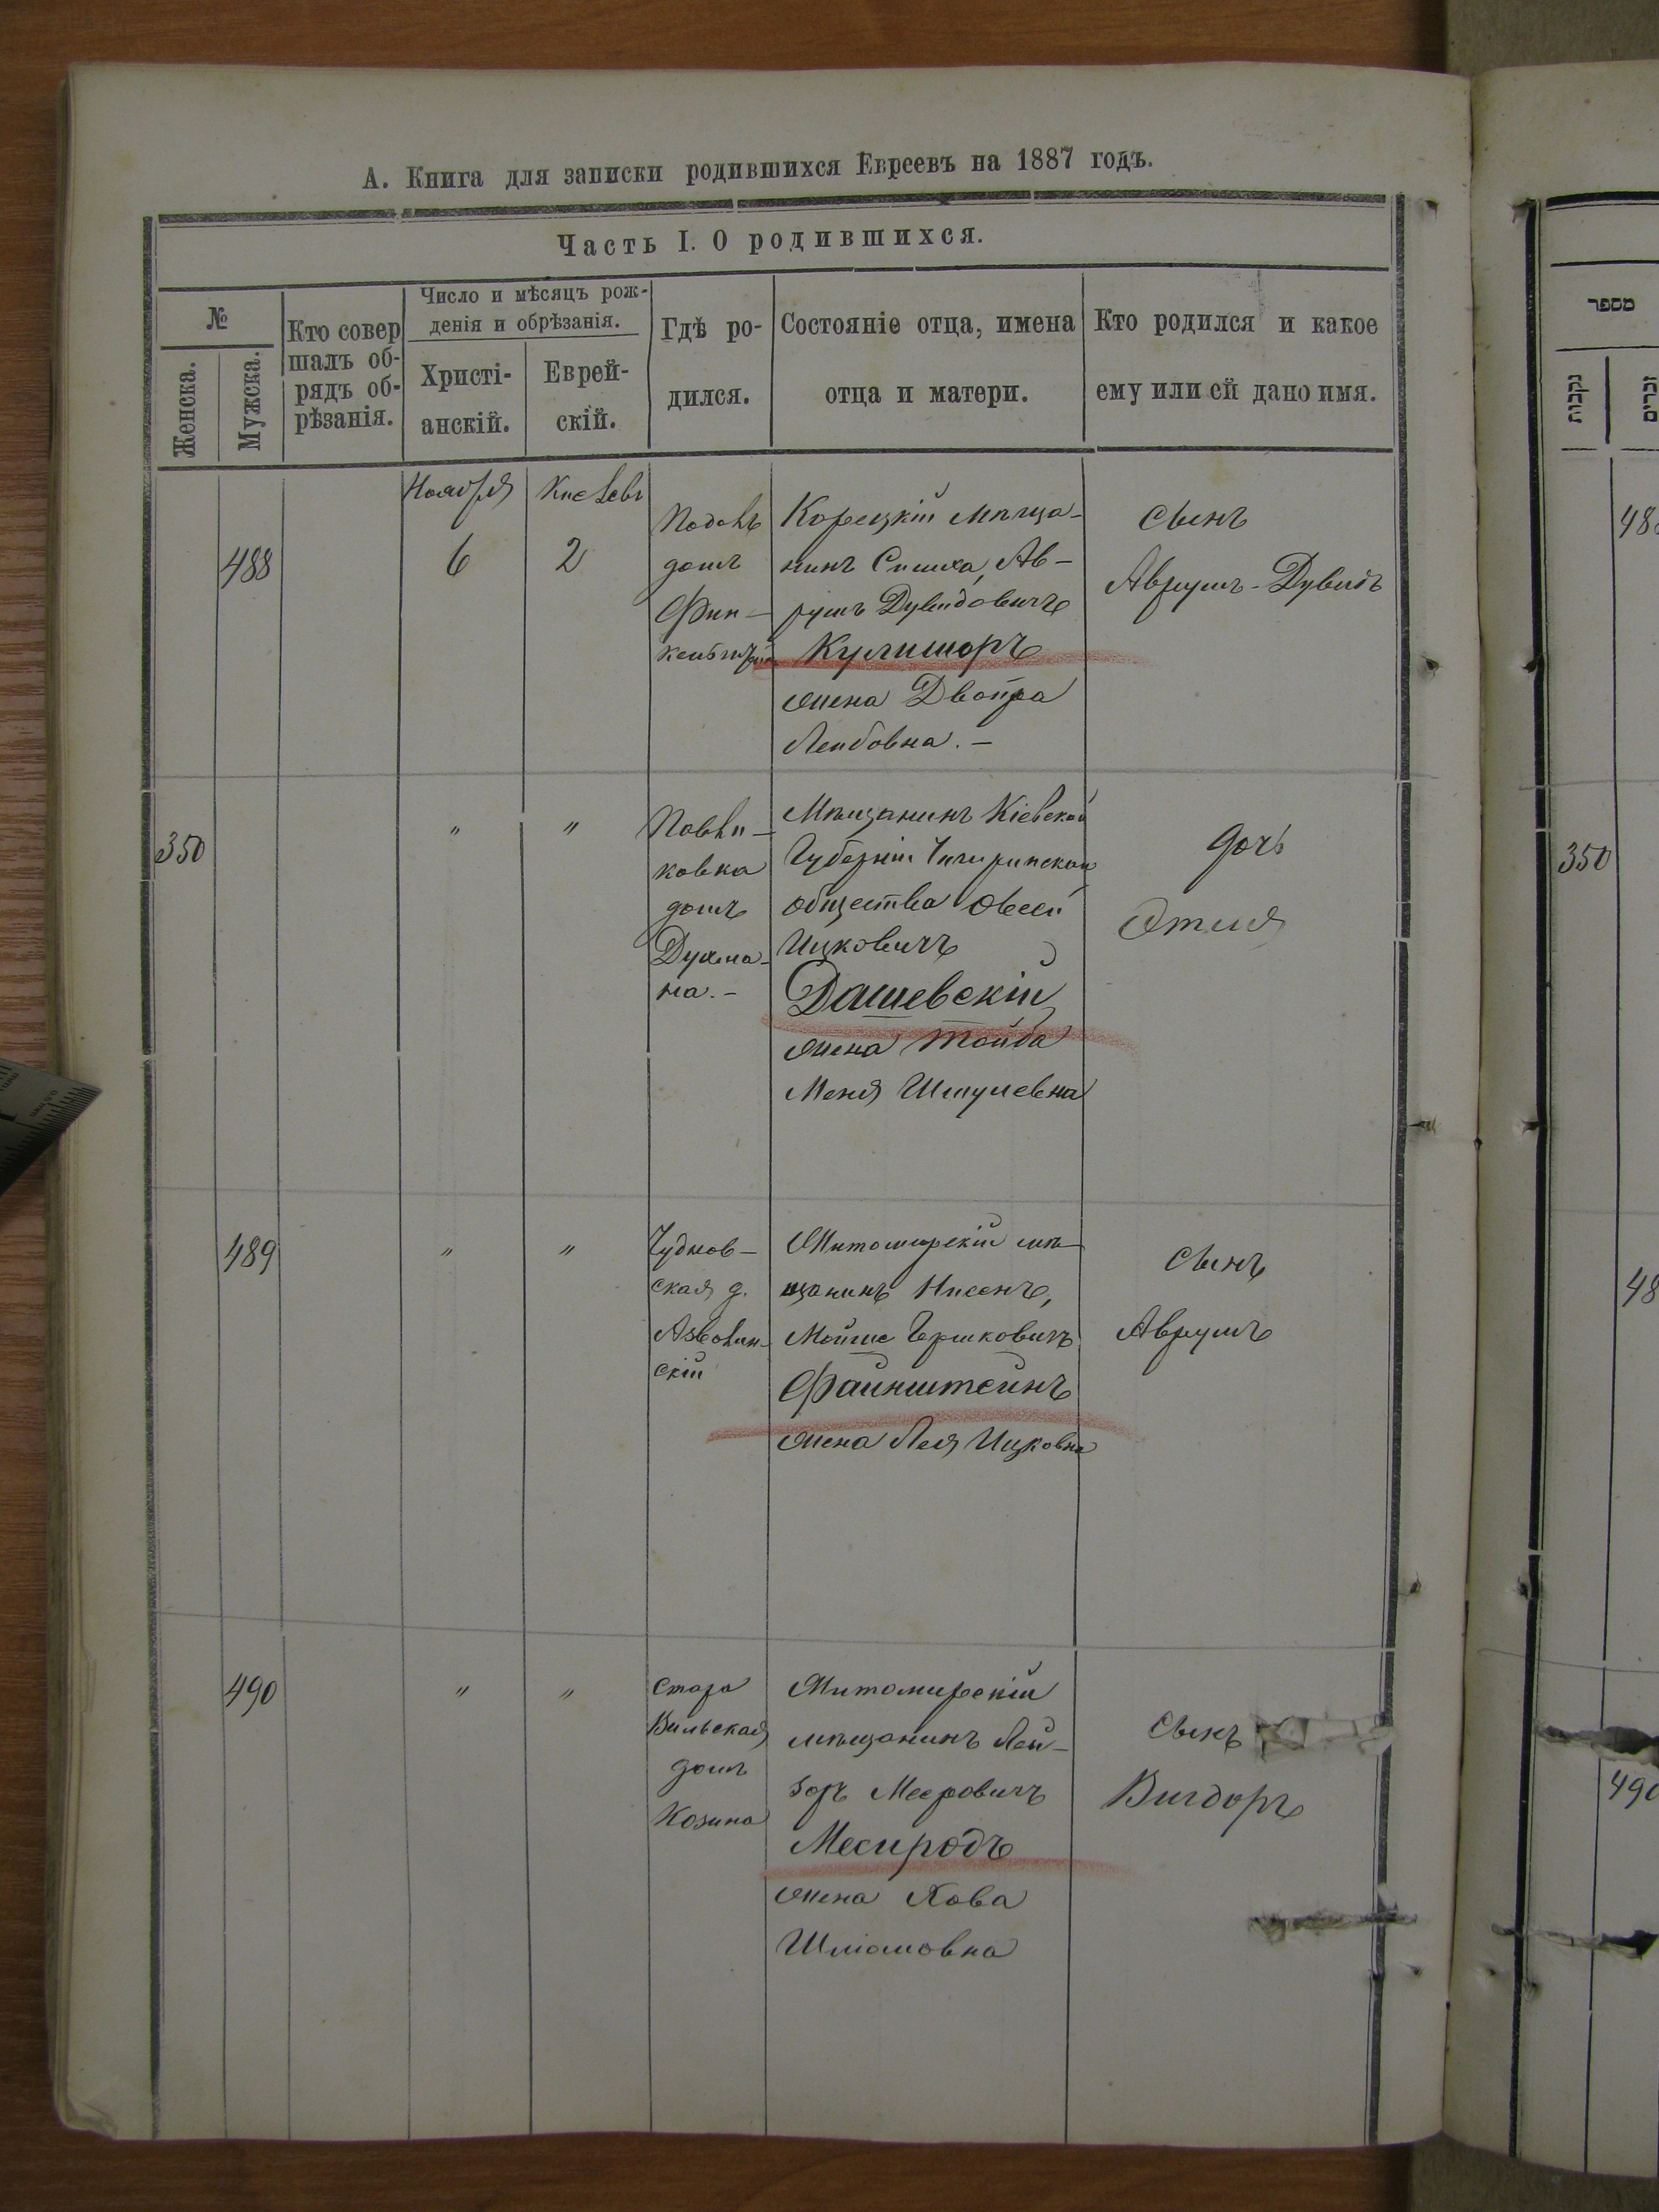 А. Книга для записки родившихся Евреевъ на 1887 годъ.
Часть I. О родившихся.
№
Женска.
Мужска.
Кто совер
шалъ об-
рядъ об-
рѣзанія.
Число и мѣсяцъ рож-
денія и обрѣзанія.
Христі-
анскій.
Еврей-
скій.
Гдѣ ро-
дился.
Состояніе отца, имена
отца и матери.
Кто родился и какое
ему или ей дано имя.
488
Ноября
6
Кислевъ
2
домъ
Фин-
Корецкій мѣща-
нинъ Симха, Ав-
румъ Дувидовичъ
Кулишоръ
жена Двойра
Лейбовна.-
сынъ
Аврумъ-Дувидъ
350
"
"
Павли-
ковка
домъ
Мѣщанинъ Кіевской
Губерніи Чигиринскаго
общества Овсей
Ицковичъ
Дашевскій
жена Тойба
Меня Шмулевна
дочь
Этля
489
"
"
Чуднов-
ская д.
скій
Житомирскій мѣ-
щанинъ Нисенъ,
Мойше Гершковичъ
Файнштейнъ
жена Лея Ицковна
сынъ
Аврумъ
490
"
"
Старо
Вильская
домъ
Козина
Житомирскій
мѣщанинъ Лей-
зоръ Мееровичъ
Месиродъ
жена Хова
Шмаовна
Сынъ
Вигдоръ
מספר
נקבות
זכרים
48
350
48
490